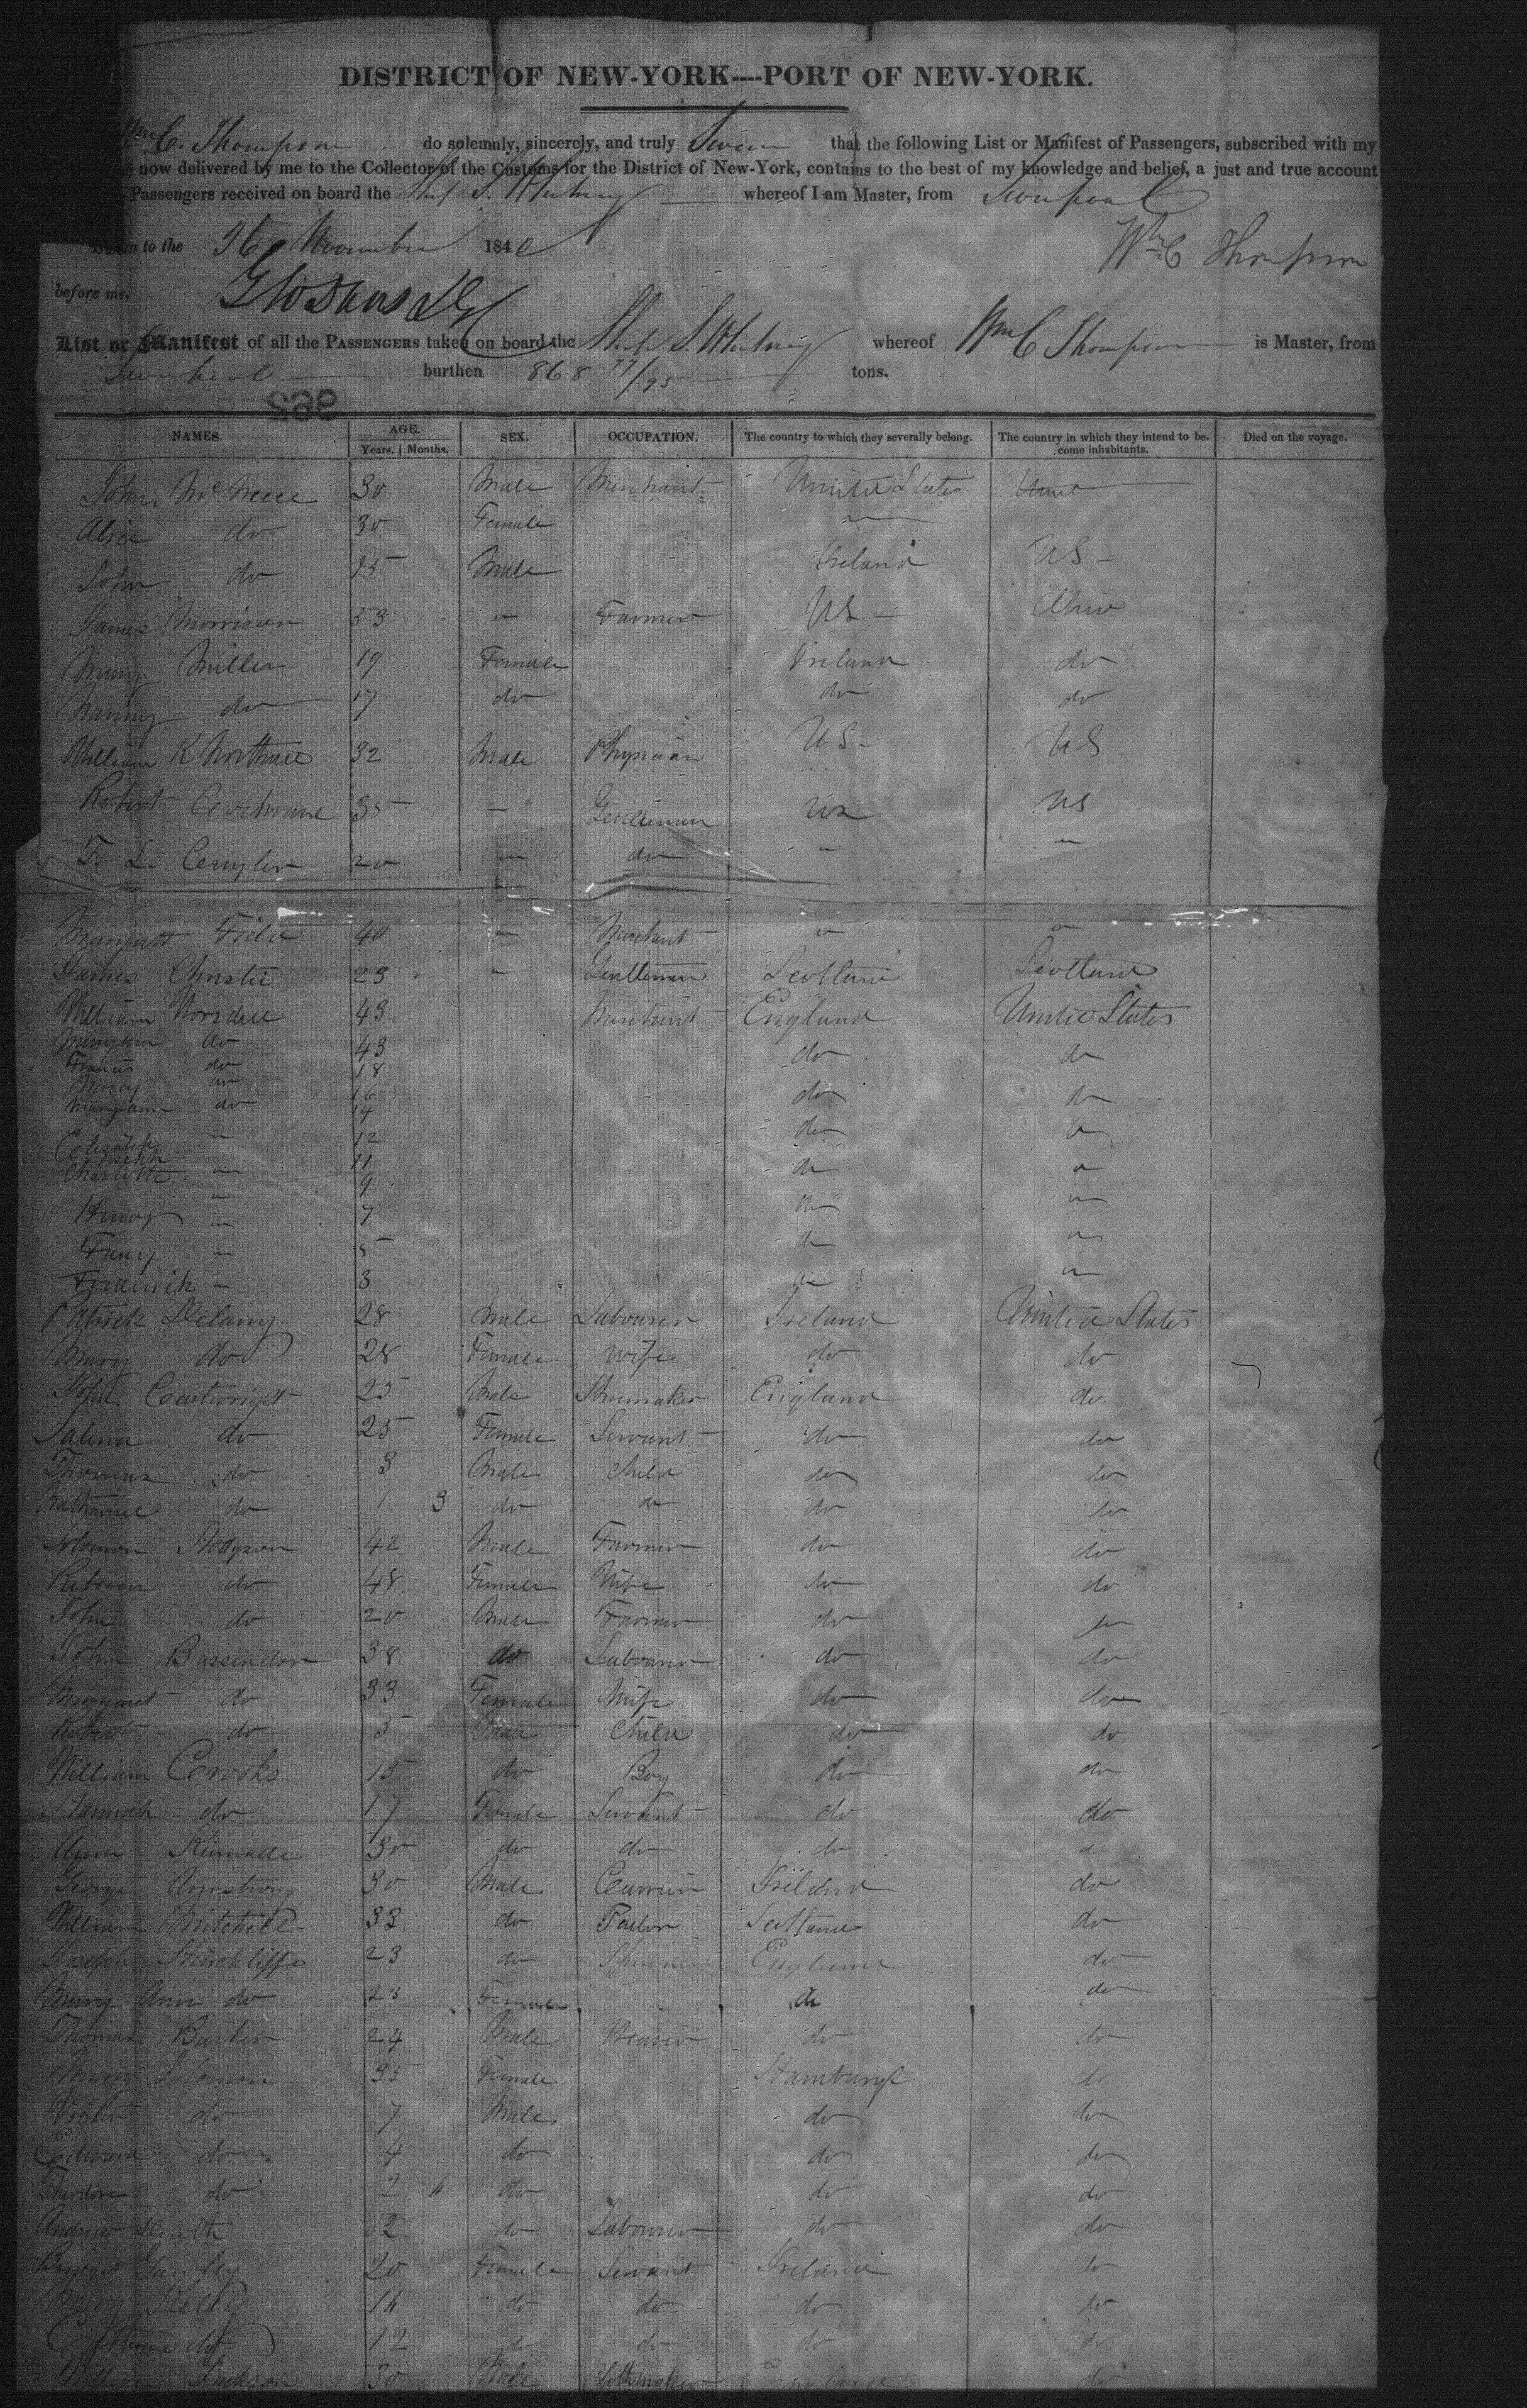 DISTRICT OF NEW-YORK----PORT OF NEW-YORK.
Wm C. Thompson do solemnly, sincerely, and truly Swear that the following List or Manifest of Passengers, subscribed with my
now delivered by me to the Collector of the Customs for the District of New-York, contains to the best of my knowledge and belief, a just and true account
Passengers received on board the Ship S. Whitney whereof I am Master, from Liverpool
Sworn to the 26 November 1840 Wm C Thompson
before me,
List or Manifest of all the PASSENGERS taken on board the Ship S Whitney whereof Wm C Thompson is Master, from
Liverpool burthen 868 77/95 tons.
NAMES. AGE. SEX. OCCUPATION. The country to which they severally belong. The country in which they intend to be- Died on the voyage.
Years. | Months. come inhabitants.
John McNeece 30 Male Merchant United States
Alice do 30 Female "
John do Male Ireland US
James Morrison 53 " Farmer US Ohio
Mary Miller 19 Female Ireland do
Nanny do 17 do do do
William K Northall 32 Male Physician US US
Robert Cochrane 35 " Gentleman US US
T. L. 20 " do " "
Field 40 " Merchant " "
James Christie 23 " Gentleman Scotland Scotland
William Worsdell 43 Merchant England United States
Maryann do 43 do do
Francis do 18
do 16 do do
Maryann do 14
Elizabeth " 12 do do
Joseph 11
Charlotte " 9 do "
Henry " 7 do "
Fanny " 5 do "
Frederick " 3 do "
Patrick Delany 28 Male Labourer Ireland United States
Mary do 28 Female Wife do do
John Cartwright 25 Male Shoemaker England do
Salina do 25 Female Servant do do
Thomas do 3 Male Child do do
Nathaniel do 1 3 do do do do
Solomon Hodgson 42 Male Farmer do do
Rebecca do 48 Female Wife do do
John do 20 Male Farmer do do
John Bassendon 38 do Labourer do do
Margaret do 33 Female Wife do do
Robert do 5 Male Child do do
William Crooks 15 do Boy do do
Hannah do 17 Female Servant do do
Ann 30 do do do do
George Armstrong 30 Male Currier Ireland do
William Mitchell 33 do Tailor Scotland do
Joseph Hinchliffe 23 do Spinner England do
Mary Ann do 23 Female do do
Thomas Barker 24 Male Weaver do do
Mary Solomon 35 Female Hamburgh do
Victor do 7 Male do do
Edward do 4 do do do
Theodore do 2 do do do
Andrew do Labourer do do
Bridget 20 Female Servant Ireland do
Mary Kelly do do do do
Catherine do 12 do do do do
William Jackson 30 Male Clothmaker England do